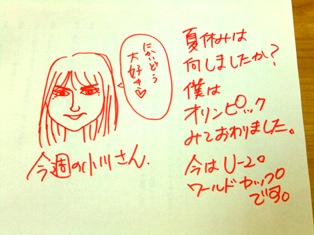 にかいどう
大好き♡
今週の小川さん.
夏休みは
何しましたか?
僕は
オリンピック
みておわりました。
今はU-20
ワールドカップ
です。